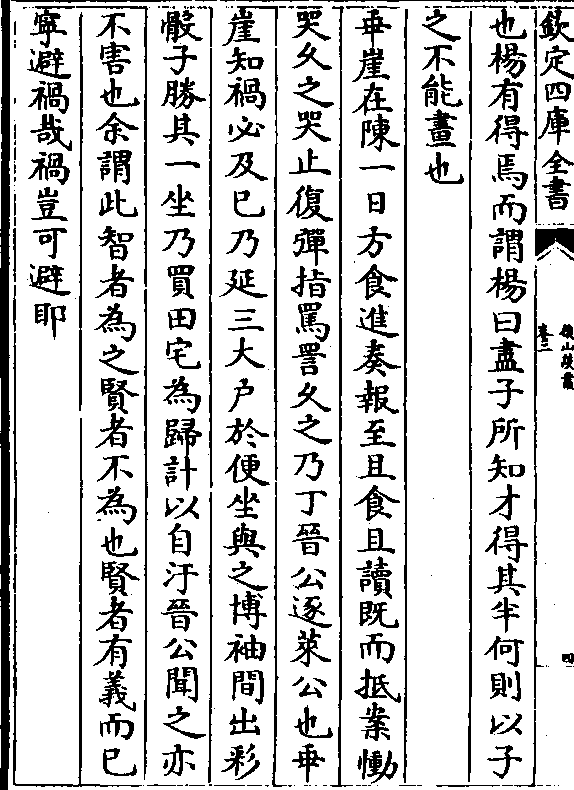 欽定四庫全書
鐵山叢叢
卷三
四
也楊有得焉而謂楊曰盡子所知才得其半何則以子
之不能畫也
乖崖在陳一日方食進奏報至且食且讀既而抵案慟
哭久之哭止復彈指罵詈久之乃丁晉公逐萊公也乖
崖知禍必及已乃延三大户於便坐與之博袖間出彩
骰子勝其一坐乃買田宅為歸計以自汙晉公聞之亦
不害也余謂此智者為之賢者不為也賢者有義而已
寜避禍哉禍豈可避耶